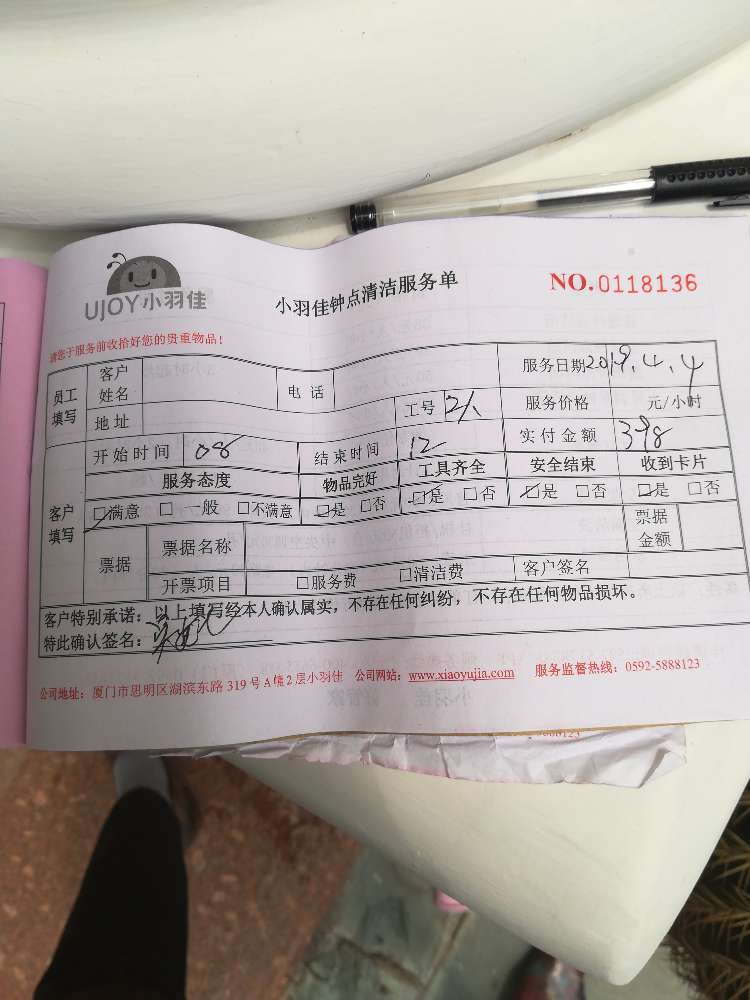 UJOY小羽佳
小羽佳钟点清洁服务单
NO.0118136
请您于服务前收拾好您的贵重物品!
员工填写 客户姓名 电话 服务日期 2019.4.4
地址 工号 服务价格 元/小时
客户填写 开始时间 08 结束时间 12 实付金额 398
服务态度 物品完好 工具齐全 安全结束 收到卡片
☑满意 □一般 □不满意 ☑是 □否 ☑是 □否 ☑是 □否 ☑是 □否
票据 票据名称 票据金额
开票项目 □服务费 □清洁费 客户签名
客户特别承诺：以上填写经本人确认属实，不存在任何纠纷，不存在任何物品损坏。
特此确认签名：
公司地址：厦门市思明区湖滨东路319号A幢2层小羽佳 公司网站：www.xiaoyujia.com 服务监督热线：0592-5888123